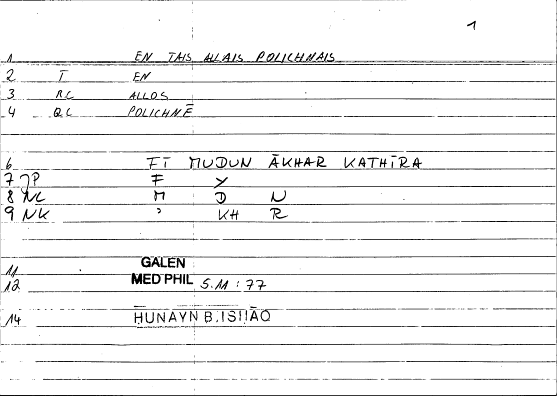 1
1 EN TAIS ALLAIS POLICHNAIS
2 T EN
3 RC ALLOS
4 QC POLICHNĒ
6 FĪ MUDUN ĀKHAR KATHĪRA
7 JP F Y
8 NC M D N
9 NK ʾ KH R
11 GALEN
12 MED PHIL 5.11 : 77
14 HUNAYN B.ISHĀQ